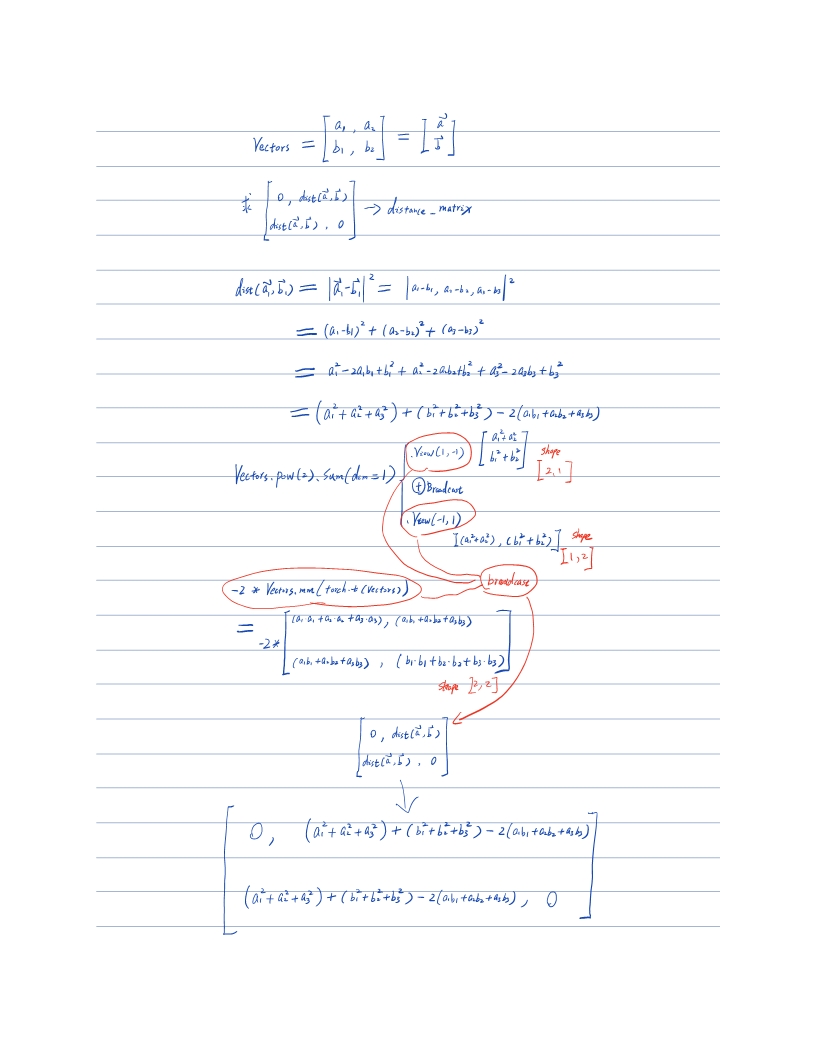 Vectors = [a₁, a₂ = [a⃗
b₁, b₂] b⃗]
求 [0, dist(a⃗,b⃗)
dist(a⃗,b⃗), 0] → distance_matrix
dist(a⃗₁,b⃗₁) = |a⃗₁-b⃗₁|² = |a₁-b₁, a₂-b₂, a₃-b₃|²
= (a₁-b₁)² + (a₂-b₂)² + (a₃-b₃)²
= a₁²-2a₁b₁+b₁² + a₂²-2a₂b₂+b₂² + a₃²-2a₃b₃+b₃²
= (a₁²+a₂²+a₃²) + (b₁²+b₂²+b₃²) - 2(a₁b₁+a₂b₂+a₃b₃)
.View(1,-1) [a₁²+a₂²
b₁²+b₂²] shape
[2,1]
Vectors.pow(2).sum(dim=1)
⊕ Broadcast
.View(-1,1)
[(a₁²+a₂²), (b₁²+b₂²)] shape
[1,2]
-2 * Vectors.mm(torch.t(Vectors)) broadcase
= -2* [(a₁·a₁+a₂·a₂+a₃·a₃), (a₁b₁+a₂b₂+a₃b₃)
(a₁b₁+a₂b₂+a₃b₃), (b₁·b₁+b₂·b₂+b₃·b₃)]
shape [2,2]
[0, dist(a⃗,b⃗)
dist(a⃗,b⃗), 0]
↓
[0, (a₁²+a₂²+a₃²)+(b₁²+b₂²+b₃²)-2(a₁b₁+a₂b₂+a₃b₃)
(a₁²+a₂²+a₃²)+(b₁²+b₂²+b₃²)-2(a₁b₁+a₂b₂+a₃b₃), 0]